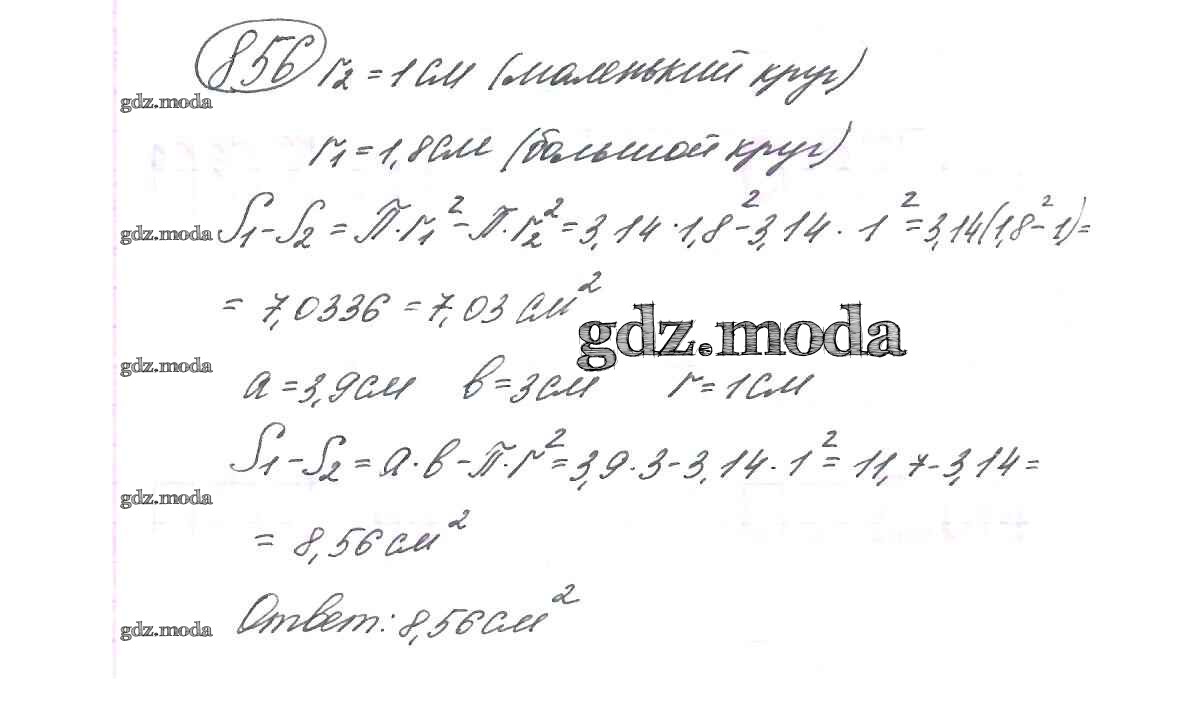 856 r₂ = 1 см (маленький круг)
gdz.moda
r₁ = 1,8 см (большой круг)
gdz.moda S₁ - S₂ = π·r₁² - π·r₂² = 3,14·1,8² - 3,14·1² = 3,14(1,8² - 1) =
= 7,0336 = 7,03 см²
gdz.moda
gdz.moda
a = 3,9 см в = 3 см r = 1 см
S₁ - S₂ = a·в - π·r² = 3,9·3 - 3,14·1² = 11,7 - 3,14 =
gdz.moda
= 8,56 см²
gdz.moda Ответ: 8,56 см²